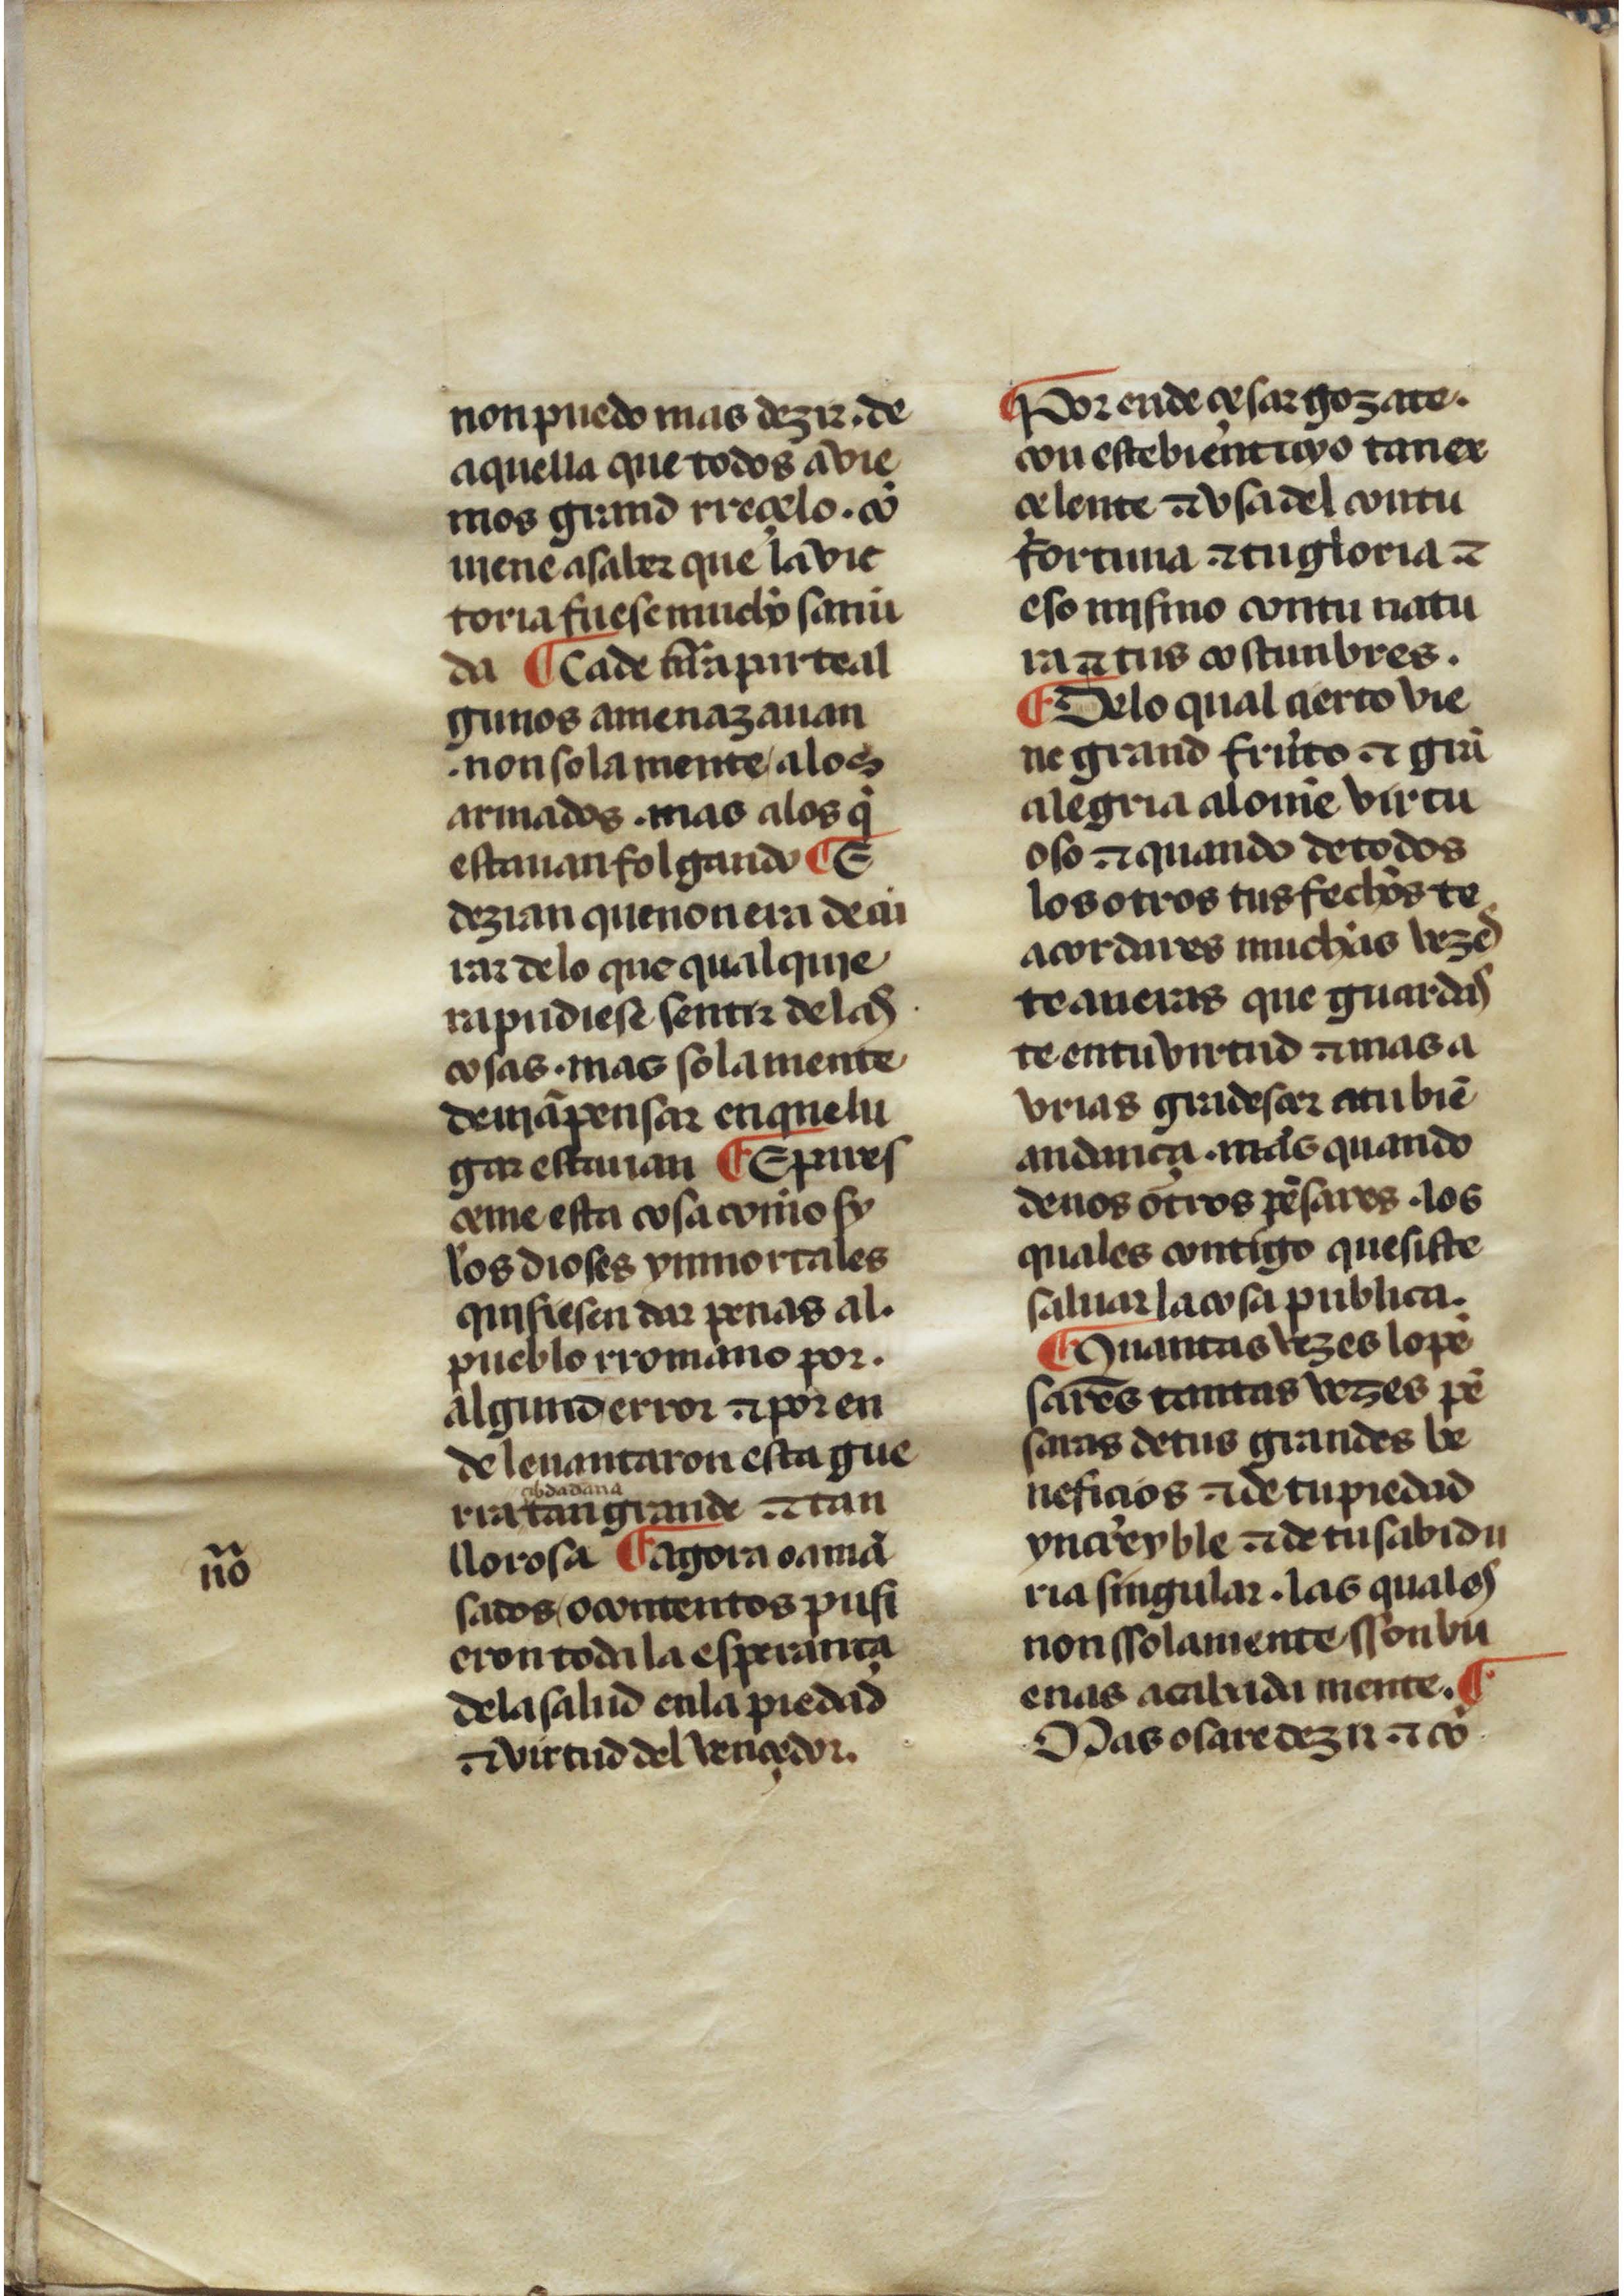 non puedo mas dezir . de
aquella que todos avie
mos grand rreçelo . cō
uiene a saber que la vic
toria fuese mucho sañu
da ¶ Ca de nr̃a parte al
gunos amenazauan
. non sola mente / a los
armados . mas a los q̃
estauan folgando ¶ E
dezian que non era de cu
rar de lo que qual quie
ra pudiese sentir de las
cosas . mas sola mente
deuiā pensar en que lu
gar estauan ¶ E pares
çeme esta cosa como sy
los dioses ynmortales
quisiesen dar penas al .
pueblo rromano por .
algund error ⁊ por en
de leuantaron esta gue
çibdadana
rra tan grande ⁊ tan
llorosa ¶ agora o amā
sados / o contentos pusi
eron toda la esperança
de la salud en la piedad
⁊ virtud del vençedor .
nõ
¶ Por ende çesar goza te .
con este bien tuyo tan ex
çelente ⁊ vsa del con tu
fortuna ⁊ tu gloria ⁊
eso mismo con tu natu
ra ⁊ tus costunbres .
¶ De lo qual çierto vie
ne grand fruto ⁊ grā
alegria al omē virtu
oso ⁊ quando de todos
los otros tus fechos te
acordares muchas vezes
te aueras que guardas
te en tu virtud ⁊ mas a
vrias gradesçer a tu biē
andança . mas quando
de nos otros pēsares . los
quales contigo quesiste
saluar la cosa publica .
¶ Quantas vezes lo pē
sares tantas vezes pē
saras de tus grandes be
nefiçios ⁊ de tu piedad
yncreyble ⁊ de tu sabidu
ria singular . las quales
non ssola mente sson bu
enas acabada mente . ¶
Mas osare dezir ⁊ cō